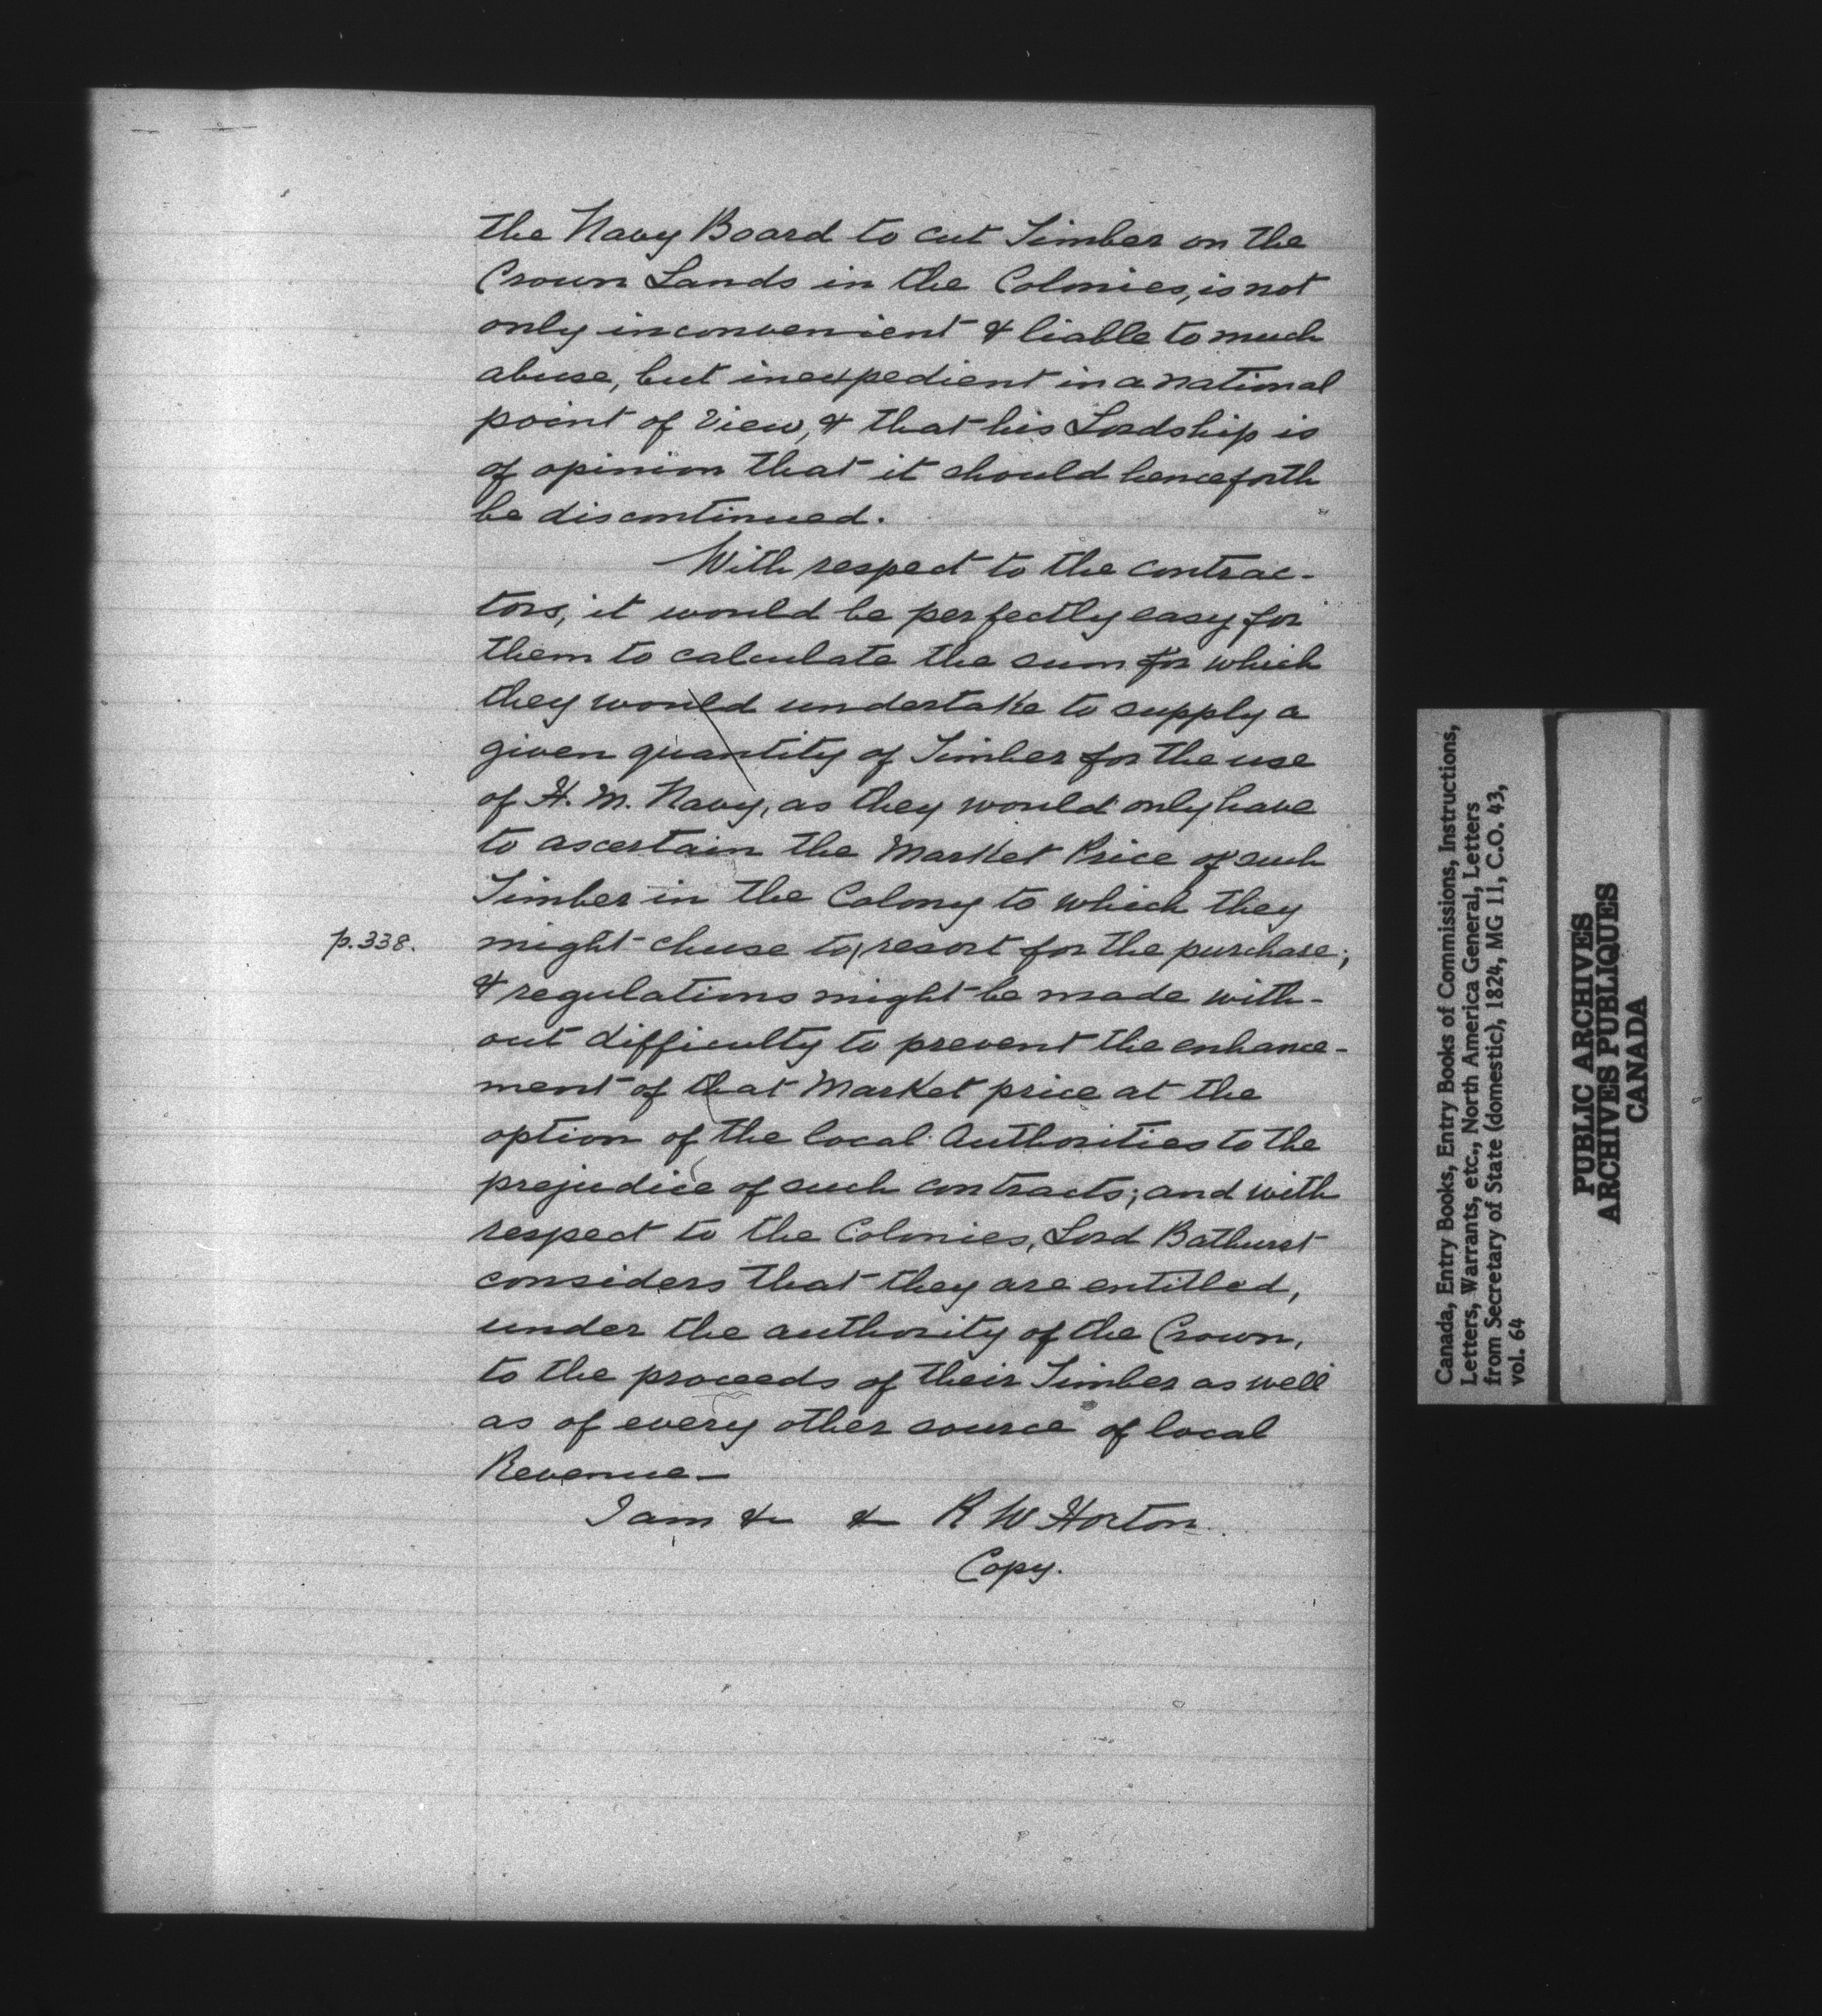 the Navy Board to cut Timber on the
Crown Lands in the Colonies, is not
only inconvenient & liable to much
abuse, but inexpedient in a national
point of View, & that his Lordship is
of opinion that it should henceforth
be discontinued.
With respect to the contrac-
tors, it would be perfectly easy for
them to calculate the sum for which
they would undertake to supply a
given quantity of Timber for the use
of H. M. Navy, as they would only have
to ascertain the Market Price of such
Timber in the Colony to which they
p. 338.
might chuse to/ resort for the purchase;
& regulations might be made with-
out difficulty to prevent the enhance-
ment of that Market price at the
option of the local Authorities to the
prejudice of such contracts; and with
respect to the Colonies, Lord Bathurst
considers that they are entitled,
under the authority of the Crown,
to the proceeds of their Timber as well
as of every other source of local
Revenue—
I am &c &c R W Horton
Copy.
Canada, Entry Books, Entry Books of Commissions, Instructions,
Letters, Warrants, etc., North America General, Letters
from Secretary of State (domestic), 1824, MG 11, C.O. 43,
vol. 64
PUBLIC ARCHIVES
ARCHIVES PUBLIQUES
CANADA